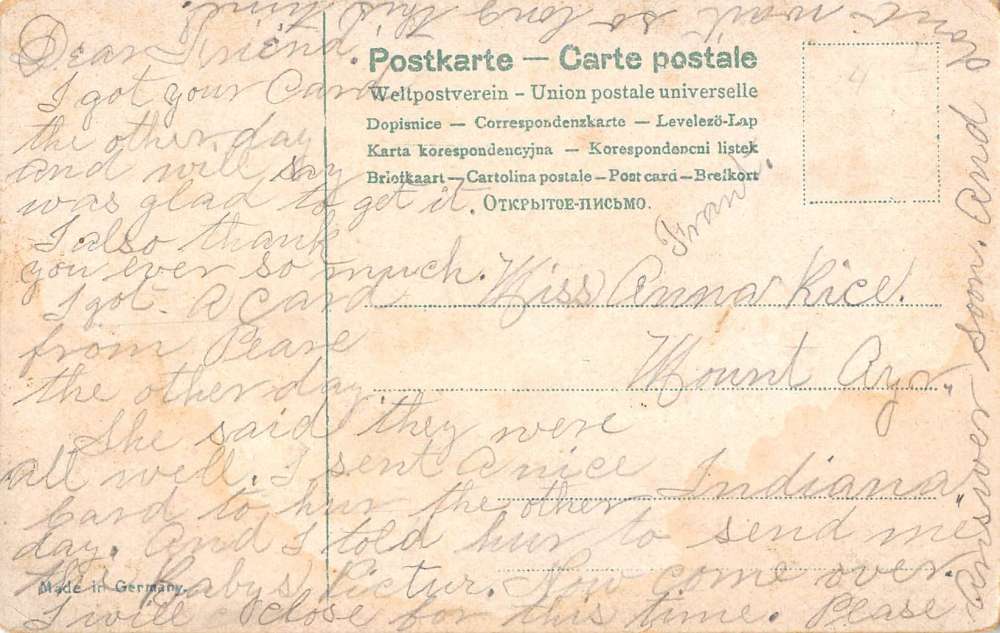 Dear Friend.
I got your Card
the other day
and will say
was glad to get it.
I also thank
you ever so much.
I got a Card
from Pearl
the other day.
She said they were
all well. I sent a nice
Card to hur the other
day. And I told hur to send me
the Babys Pictur. Now come over.
I will close for this time. Please
Answer soon. And don't
wait so long this time.
Postkarte — Carte postale
Weltpostverein – Union postale universelle
Dopisnice — Correspondenzkarte — Levelező-Lap
Karta korespondencyjna — Korespondencni listek
Briefkaart — Cartolina postale — Post card — Brefkort
Открытое-письмо.
From
Miss Anna Rice.
Mount Ayr,
Indiana,
Made in Germany.